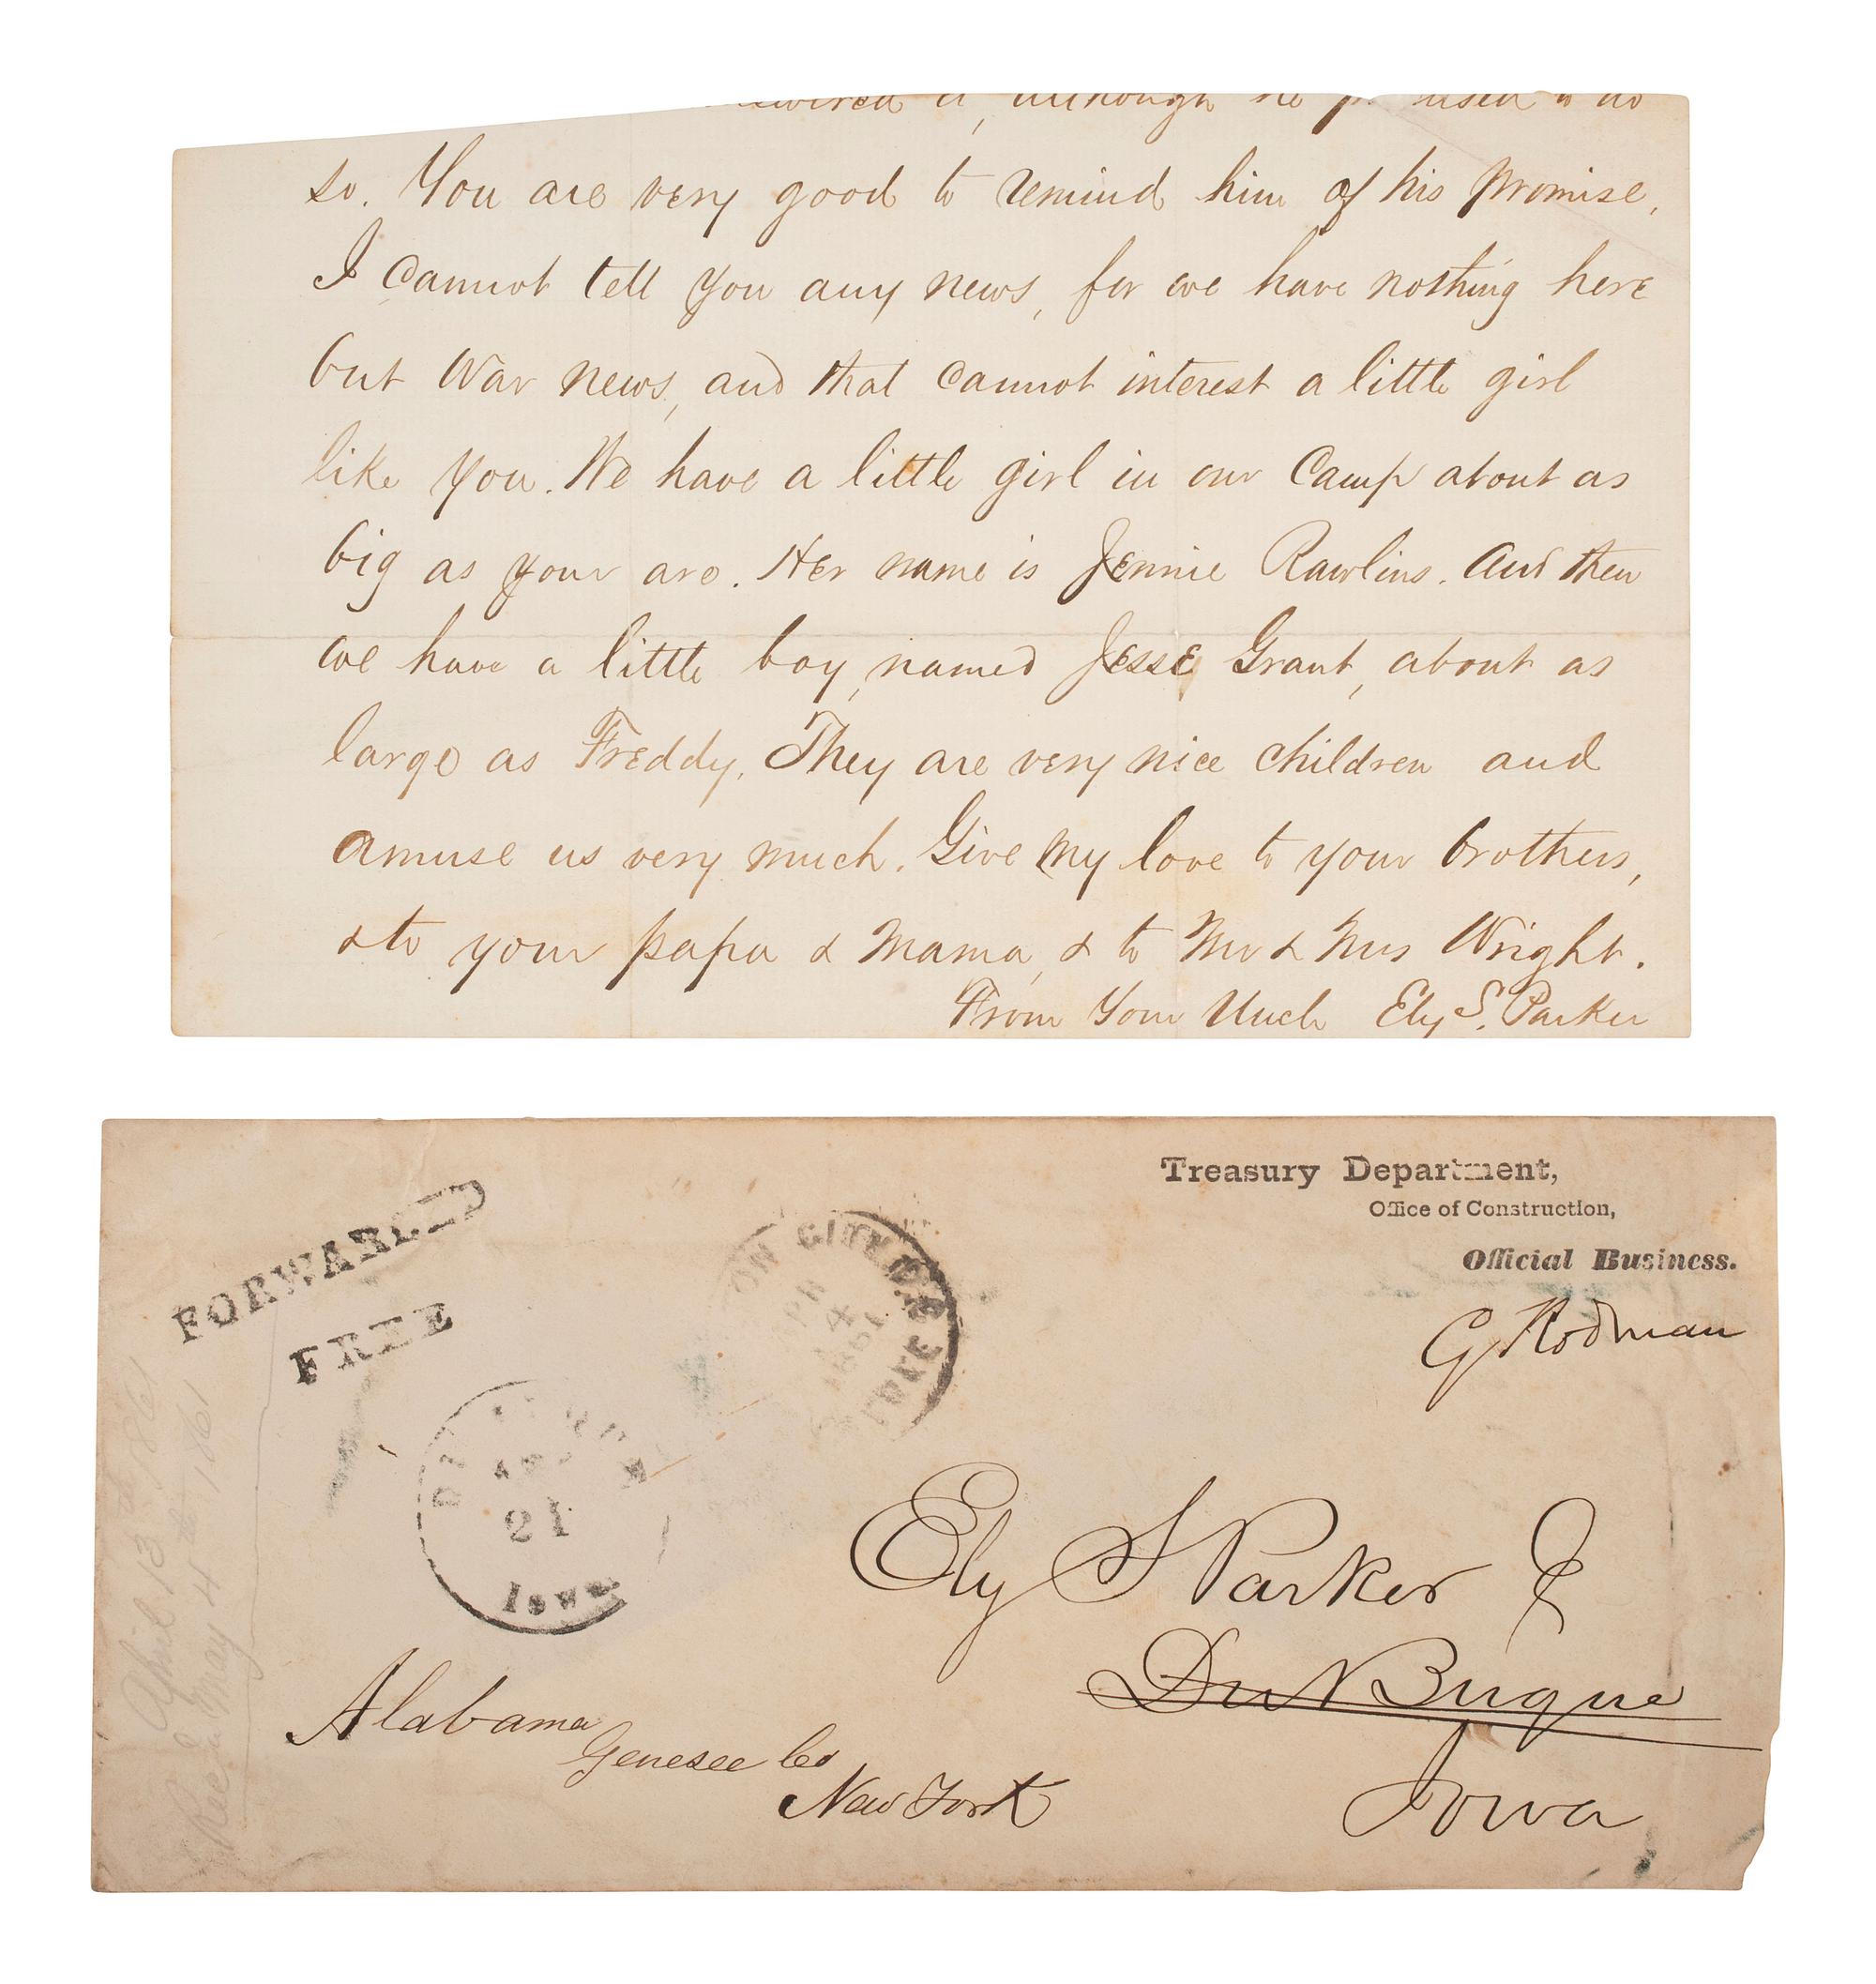 although he
so. You are very good to remind him of his promise,
I cannot tell you any news, for we have nothing here
but War news, and that cannot interest a little girl
like you. We have a little girl in our Camp about as
big as your are. Her name is Jennie Rawlins. And then
we have a little boy, named Jesse Grant, about as
large as Freddy. They are very nice children and
amuse us very much. Give my love to your brothers,
& to your papa & Mama, & to Mr & Mrs Wright.
From Your Uncle Ely S. Parker
Treasury Department,
Office of Construction,
Official Business.
G Rodman
FORWARDED
FREE
21
Iowa
Ely S Parker
DuBuque
Iowa
Alabama
Genesee Co
New York
April 13th 1861
Rec'd May 4th 1861